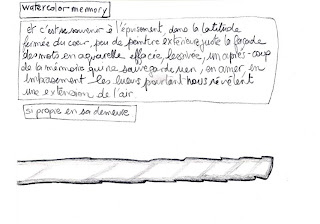 watercolor memory
et c'est se souvenir à l'épuisement, dans la latitude
fermée du cœur, peu de peinture extérieure juste la façade
des mots en aquarelle effacée, lessivée, un après-coup
de la mémoire qui ne sauvegarde rien, en amer, en
impasse les lueurs pourtant nous révèlent
une extension de l'air
si propre en sa demeure